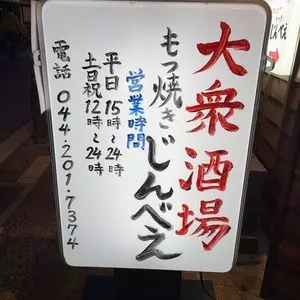 大衆酒場
もつ焼きじんべえ
営業時間
平日 15時~24時
土日祝 12時~24時
電話 044-201-7374